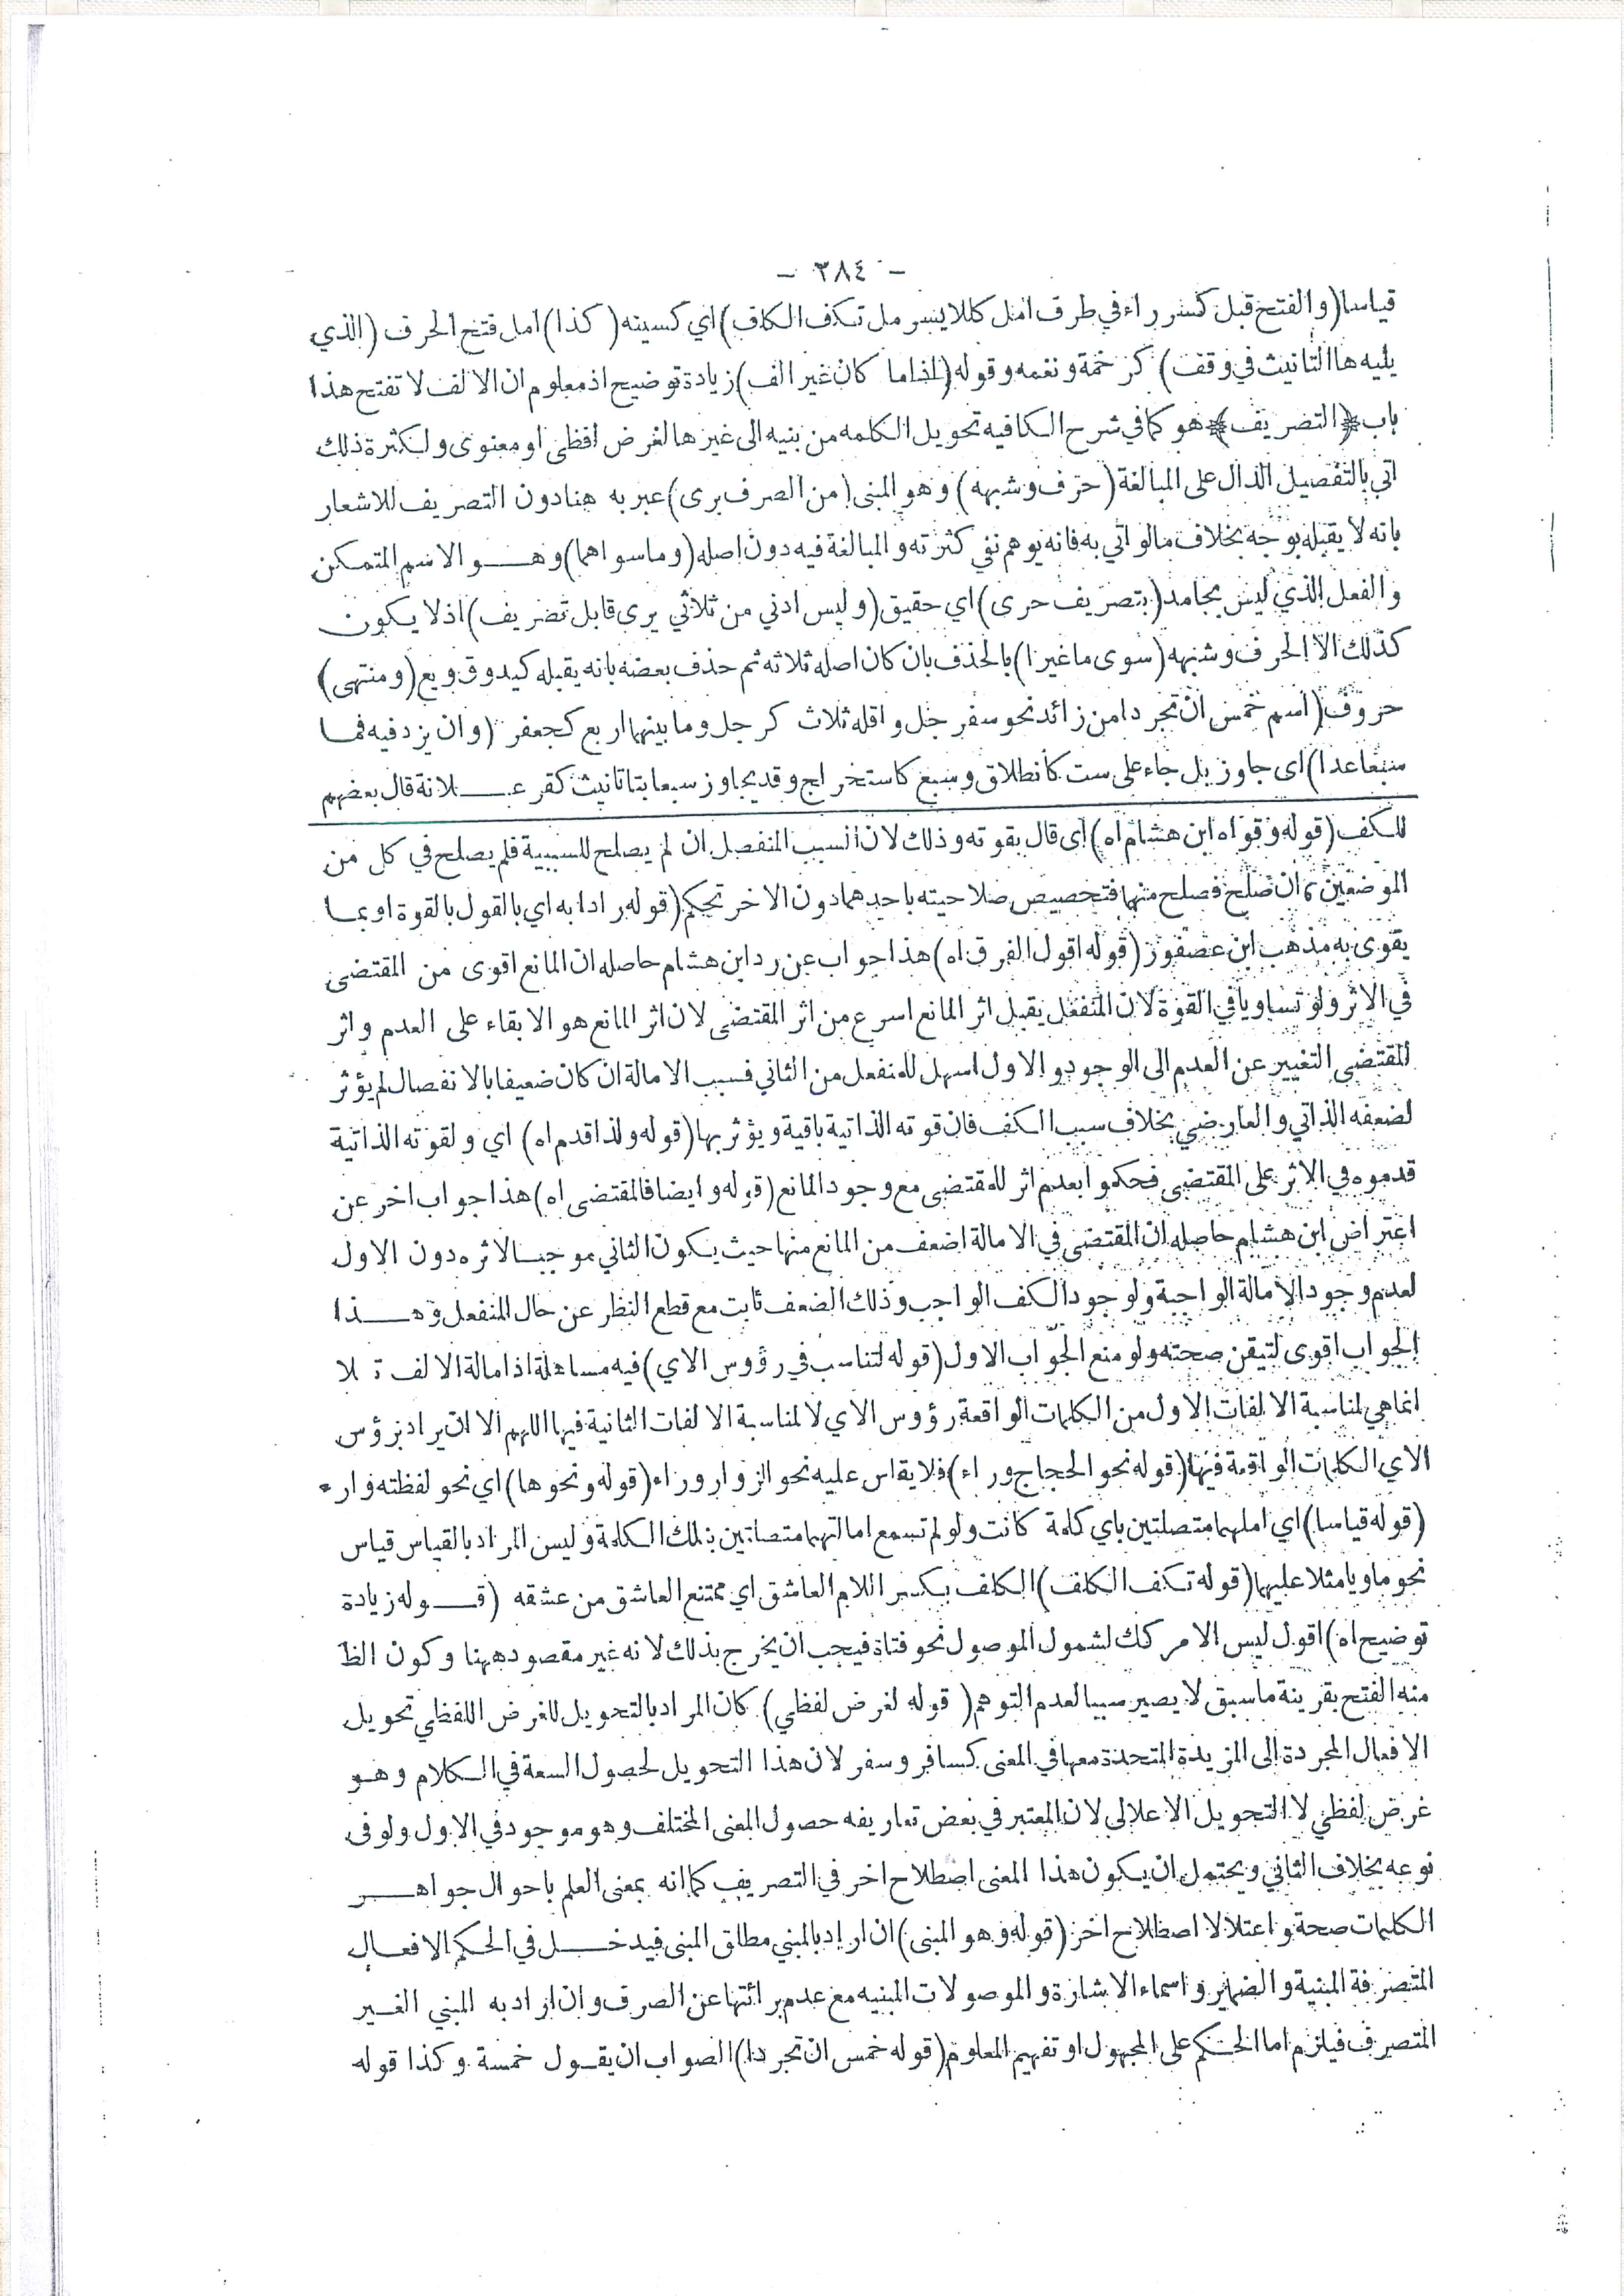 - ٣٨٤ -
قياسا (والفتح قبل كسر راء في طرف امل كللايسر مل تكف الكلف) اي كسينه (كذا) امل فتح الحرف (الذي
يليه ها التأنيث في وقف) كرخمة ونعمه وقوله (اذا ما كان غير الف) زيادة توضيح اذ معلوم ان الالف لا تفتح هذا
باب ﴿التصريف﴾ هو كما في شرح الكافيه تحويل الكلمه من بنيه الى غيرها لغرض لفظى او معنوى ولكثرة ذلك
اتي بالتفصيل الدال على المبالغة (حرف وشبهه) وهو المبنى (من الصرف برى) عبر به هنا دون التصريف للاشعار
بانه لا يقبله بوجه بخلاف ما لو اتي به فانه يوهم نفي كثرته والمبالغة فيه دون اصله (وما سواهما) وهو الاسم المتمكن
والفعل الذي ليس بجامد (بتصريف حرى) اي حقيق (وليس ادنى من ثلاثي يرى قابل تصريف) اذ لا يكون
كذلك الا الحرف وشبهه (سوى ما غيرا) بالحذف بان كان اصله ثلاثه ثم حذف بعضه بانه يقبله كيد وق وبع (ومنتهى)
حروف (اسم خمس ان تجردا من زائد نحو سفرجل واقله ثلاث كرجل وما بينهما اربع كجعفر (وان يزد فيه فما
سبعا عدا) اى جاوز بل جاء على ست كانطلاق وسبع كاستخراج وقد يجاوز سبعا بتا تانيث كقرعبلانة قال بعضهم
للكف (قوله وقواه ابن هشام اه) اى قال بقوته وذلك لان السبب المنفصل ان لم يصلح للسببية فلم يصلح في كل من
الموضعين وان صلح فصلح منهما فتخصيص صلاحيته باحدهما دون الاخر تحكم (قوله رادا به اي بالقول بالقوة او بما
يقوى به مذهب ابن عصفور (قوله اقول الفرق اه) هذا جواب عن رد ابن هشام حاصله ان المانع اقوى من المقتضى
في الاثر ولو تساويا في القوة لان المنفعل يقبل اثر المانع اسرع من اثر المقتضى لان اثر المانع هو الابقاء على العدم واثر
المقتضى التغيير عن العدم الى الوجود والاول اسهل للمنفعل من الثاني فسبب الامالة ان كان ضعيفا بالانفصال لم يؤثر
لضعفه الذاتي والعارضي بخلاف سبب الكف فان قوته الذاتية باقية ويؤثر بها (قوله ولذا قدم اه) اي ولقوته الذاتية
قدموه في الاثر على المقتضى فحكموا بعدم اثر للمقتضى مع وجود المانع (قوله وايضا فالمقتضى اه) هذا جواب اخر عن
اعتراض ابن هشام حاصله ان المقتضى في الامالة اضعف من المانع منها حيث يكون الثاني موجبا لاثره دون الاول
لعدم وجود الامالة الواجبة ولوجود الكف الواجب وذلك الضعف ثابت مع قطع النظر عن حال المنفعل وهذا
الجواب اقوى لتيقن صحته ولو منع الجواب الاول (قوله لتناسب في رؤوس الاي) فيه مساهلة اذ امالة الالف تلا
انما هي لمناسبة الالفات الاول من الكلمات الواقعة رؤوس الاي لا لمناسبة الالفات الثانية فيها اللهم الا ان يراد برؤس
الاي الكلمات الواقعة فيها (قوله نحو الحجاج وراء) فلا يقاس عليه نحو الزوار وراء (قوله ونحوها) اي نحو لفظته وار
(قوله قياسا) اي املهما متصلتين باي كلمة كانت ولو لم تسمع امالتهما متصلتين بتلك الكلمة وليس المراد بالقياس قياس
نحو ما ويا مثلا عليها (قوله تكف الكلف) الكلف بكسر اللام العاشق اي ممتنع العاشق من عشقه (قوله زيادة
توضيح اه) اقول ليس الامر كك لشمول الموصول نحو فتاة فيجب ان يخرج بذلك لانه غير مقصود ههنا وكون الظ
منه الفتح بقرينة ما سبق لا يصير سببا لعدم التوهم (قوله لغرض لفظي) كان المراد بالتحويل للغرض اللفظي تحويل
الافعال المجردة الى المزيدة المتحدة معها في المعنى كسافر وسفر لان هذا التحويل لحصول السعة في الكلام وهو
غرض لفظي لا التحويل الاعلالي لان المعتبر في بعض تعاريفه حصول المعنى المختلف وهو موجود في الاول ولو فى
نوعه بخلاف الثاني ويحتمل ان يكون هذا المعنى اصطلاح اخر في التصريف كما انه بمعنى العلم باحوال جواهر
الكلمات صحة واعتلالا اصطلاح اخر (قوله وهو المبنى) ان اريد بالمبني مطلق المبنى فيدخل في الحكم الافعال
المتصرفة المبنية والضماير واسماء الاشارة والموصولات المبنيه مع عدم برائتها عن الصرف وان اراد به المبني الغير
المتصرف فيلزم اما الحكم على المجهول او تفهيم المعلوم (قوله خمس ان تجردا) الصواب ان يقول خمسة وكذا قوله